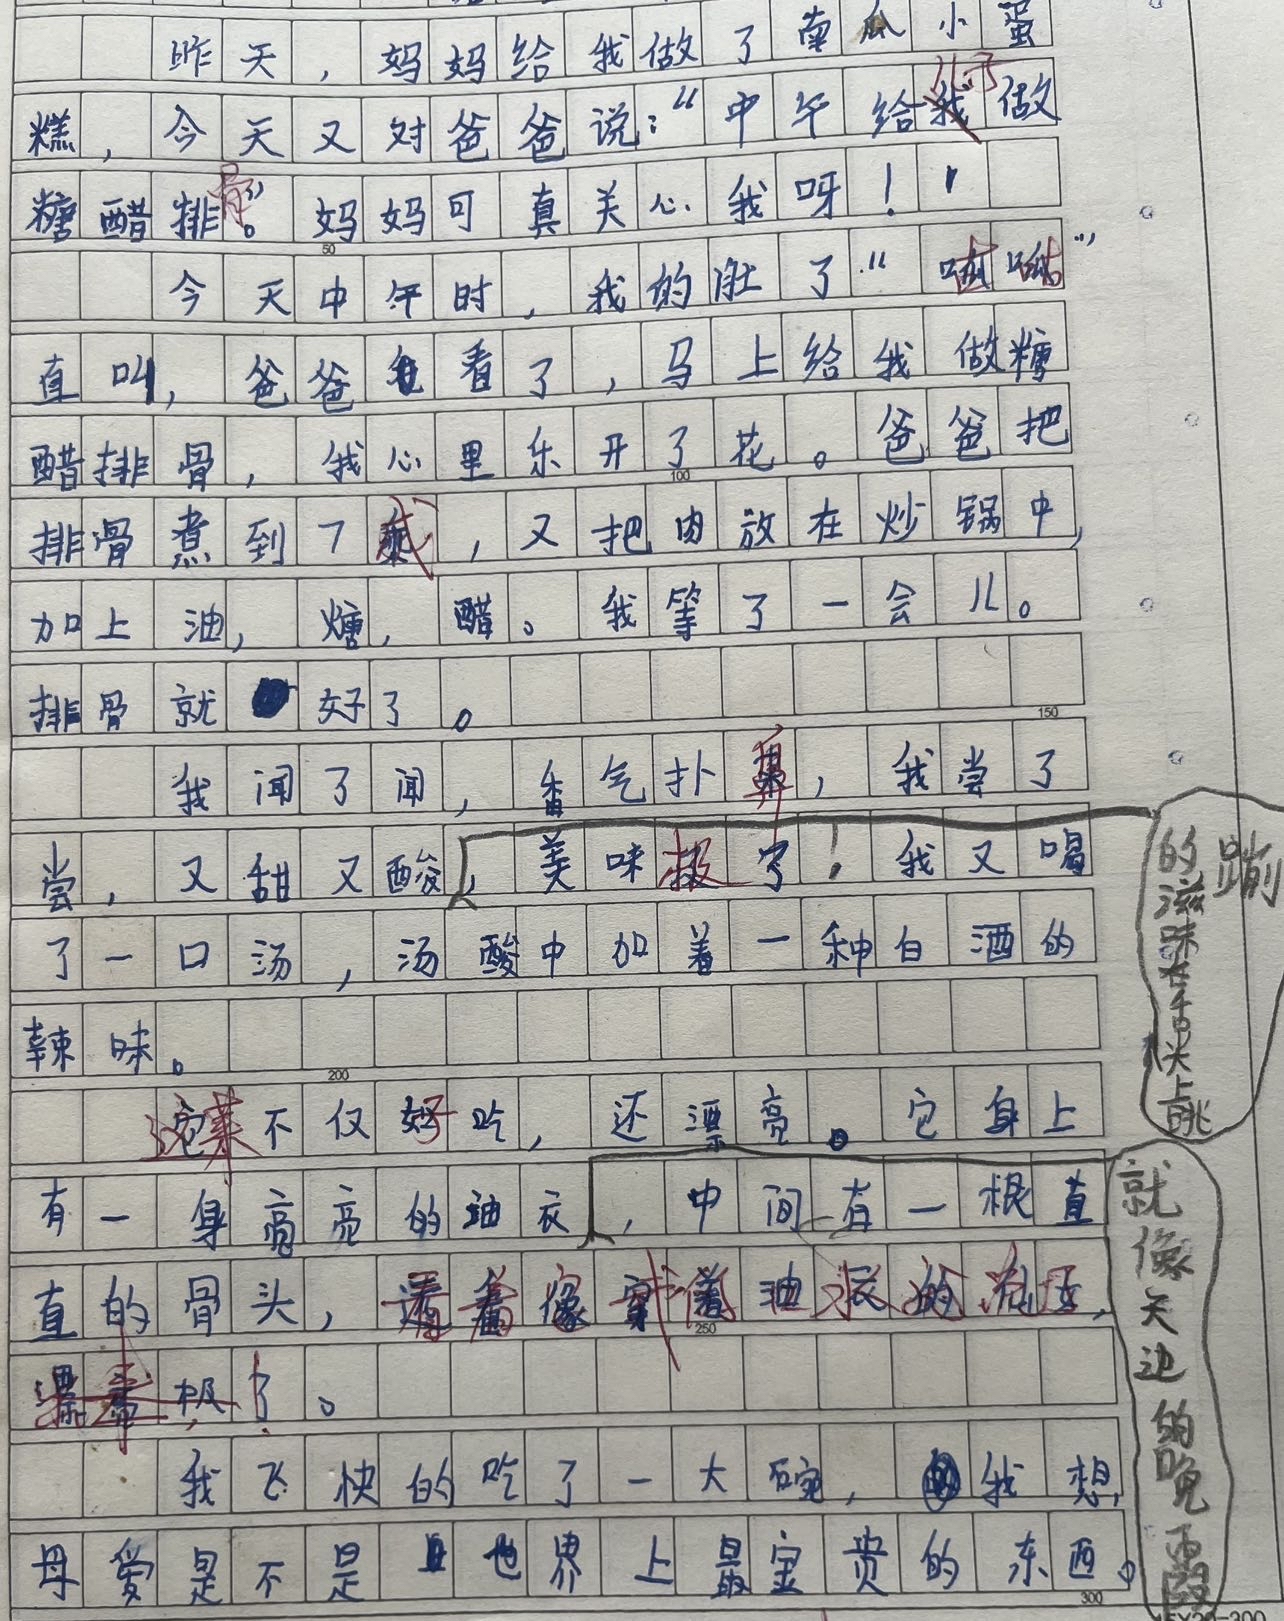 昨天，妈妈给我做了南瓜小蛋
糕，今天又对爸爸说：“中午给我做
糖醋排骨。”妈妈可真关心我呀！
今天中午时，我的肚了“
直叫，爸爸看了，马上给我做糖
醋排骨，我心里乐开了花。爸爸把
排骨煮到7成，又把肉放在炒锅中，
加上油，糖，醋。我等了一会儿。
排骨就好了。
我闻了闻，香气扑鼻，我尝了
尝，又甜又酸，美味极了！我又喝
了一口汤，汤酸中加着一种白酒的
辣味。
这菜不仅好吃，还漂亮。它身上
有一身亮亮的油衣，中间有一根直
直的骨头，看着像穿着油衣的
漂亮极了。
我飞快的吃了一大碗，我想，
母爱是不是世界上最宝贵的东西。
的滋味在舌尖上跳
蹦
就像天边的晚霞
50
100
150
200
250
300